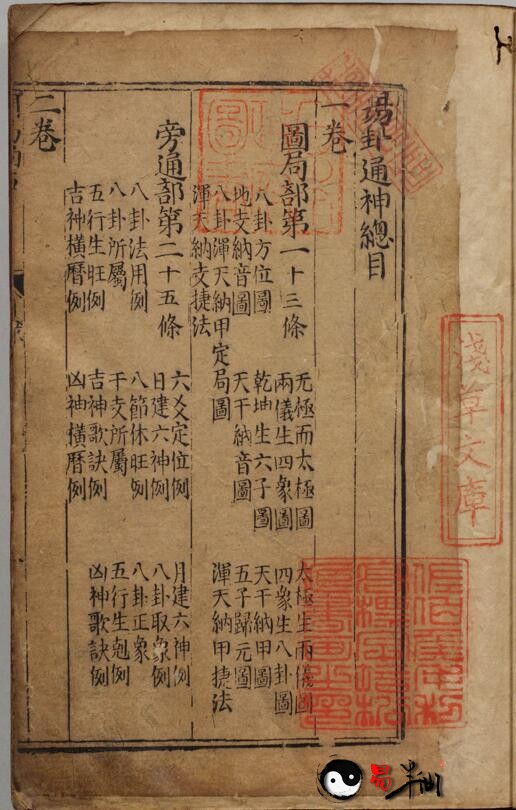 易卦通神總目
一卷
圖局部第一十三條
无極而太極圖 太極生兩儀圖
兩儀生四象圖 四象生八卦圖
八卦方位圖 乾坤生六子圖 天干納甲圖
地支納音圖 天干納音圖 五子歸元圖
八卦渾天納甲定局圖 渾天納甲捷法
渾天納支捷法
旁通部第二十五條
六爻定位例 月建六神例
日建六神例 八卦取象例
八卦法用例 八節休旺例 八卦正象
八卦所屬例 干支所屬例 五行生剋例
五行生旺例 吉神歌訣例 凶神歌訣例
吉神橫曆例 凶神橫曆例
二卷
淺草文庫